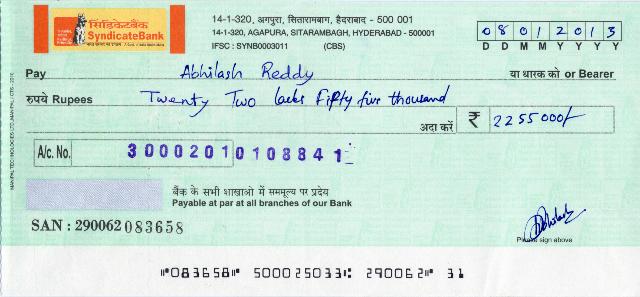 सिंडिकेटबैंक
SyndicateBank
14-1-320, अगपुरा, सितारामबाग, हैदराबाद - 500 001
14-1-320, AGAPURA, SITARAMBAGH, HYDERABAD - 500001
IFSC : SYNB0003011 (CBS)
0 8 0 1 2 0 1 3
D D M M Y Y Y Y
Pay Abhilash Reddy या धारक को or Bearer
रुपये Rupees Twenty Two lacks Fifty five thousand
अदा करें ₹ 2255000/-
A/c. No. 30002010108841
बैंक के सभी शाखाओ में सममूल्य पर प्रदेय
Payable at par at all branches of our Bank
SAN : 290062 083658
Abhilash
Please sign above
⑈083658⑈ 500025033⑆ 290062⑈ 31